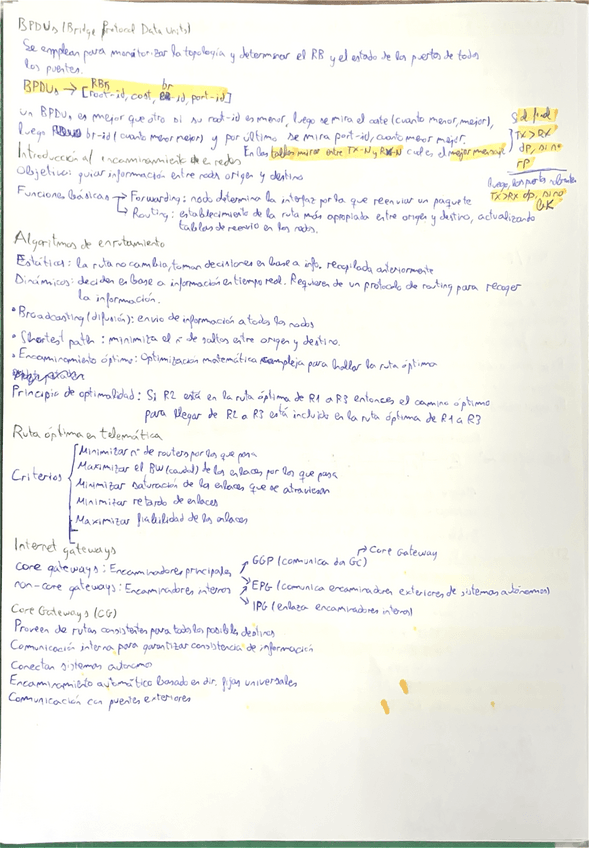 BPDUs (Bridge Protocol Data Units)
Se emplean para monitorizar la topología y determinar el RB y el estado de los puertos de todos
los puentes.
RBR br
BPDUs → [root-id, cost, id, port-id]
un BPDU es mejor que otro si su root-id es menor, luego se mira el coste (cuanto menor, mejor),
luego br-id (cuanto menor mejor) y por último se mira port-id, cuanto menor mejor.
En las tablas mirar entre TX-N y RX-N cual es el mejor mensaje
TX>RX
dp, si no
rp
luego, los puertos
TX>RX dp, si no
BK
Introducción al encaminamiento de redes
Objetivo: guiar información entre nodos origen y destino
Funciones básicas → Forwarding: nodo determina la interfaz por la que reenviar un paquete
→ Routing: establecimiento de la ruta más apropiada entre origen y destino, actualizando
tablas de reenvío en los nodos.
Algoritmos de enrutamiento
Estáticos: la ruta no cambia, toman decisiones en base a info. recopilada anteriormente
Dinámicos: deciden en base a información en tiempo real. Requieren de un protocolo de routing para recoger
la información.
• Broadcasting (difusión): envío de información a todos los nodos
• Shortest path: minimiza el nº de saltos entre origen y destino.
• Encaminamiento óptimo: Optimización matemática compleja para hallar la ruta óptima
Principio de optimalidad: Si R2 está en la ruta óptima de R1 a R3 entonces el camino óptimo
para llegar de R2 a R3 está incluido en la ruta óptima de R1 a R3
Ruta óptima en telemática
Criterios
Minimizar nº de routers por los que pasa
Maximizar el BW (caudal) de los enlaces por los que pasa
Minimizar saturación de los enlaces que se atraviesan
Minimizar retardo de enlaces
Maximizar fiabilidad de los enlaces
Internet gateways
→ Core Gateway
core gateways: Encaminadores principales → GGP (comunica dos GC)
non-core gateways: Encaminadores internos → EPG (comunica encaminadores exteriores de sistemas autónomos)
→ IPG (enlaza encaminadores internos)
Core Gateways (CG)
Proveen de rutas consistentes para todos los posibles destinos
Comunicación interna para garantizar consistencia de información
Conectan sistemas autonomo
Encaminamiento automático basado en dir. fijas universales
Comunicación con puentes exteriores